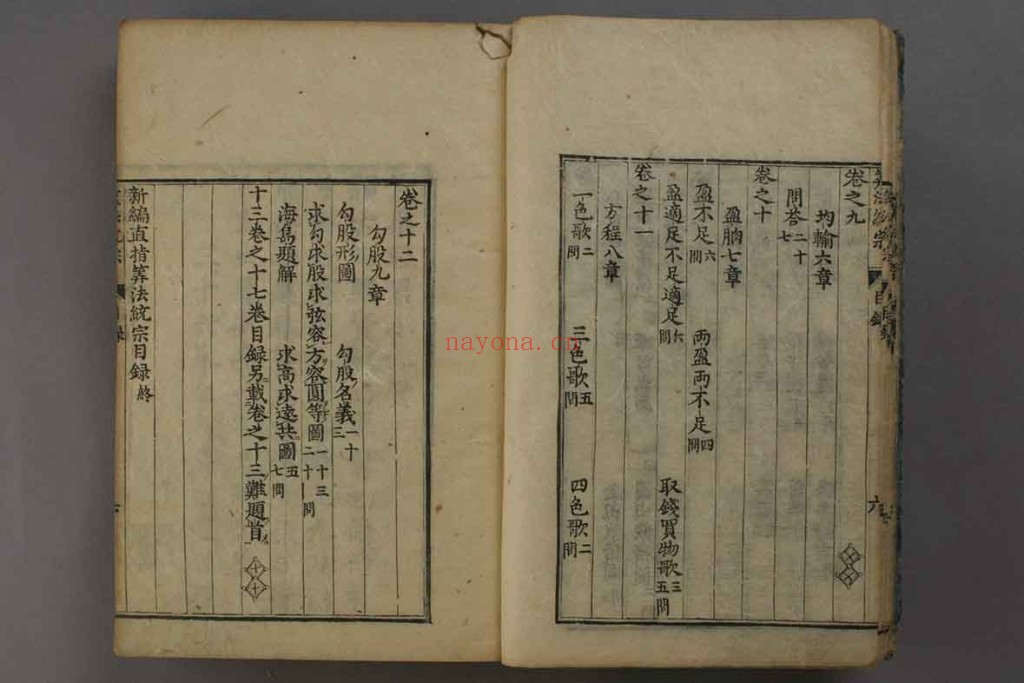 卷之九
均輸六章
問荅二十七
卷之十
盈朒七章
盈不足六問 兩盈兩不足四問
盈適足不足適足六問 取錢買物歌三五問
卷之十一
方程八章
一色歌二問 三色歌五問 四色歌二問
目錄
六
卷之十二
勾股九章
勾股形圖 勾股名義一十三
求勾求股求弦容方容圓等圖一十三二十一問
海島題解 求高求遠共圖五七問
十三卷之十七卷目録另載卷之十三難題首
新編直指筭法統宗目録終
nayona.cn